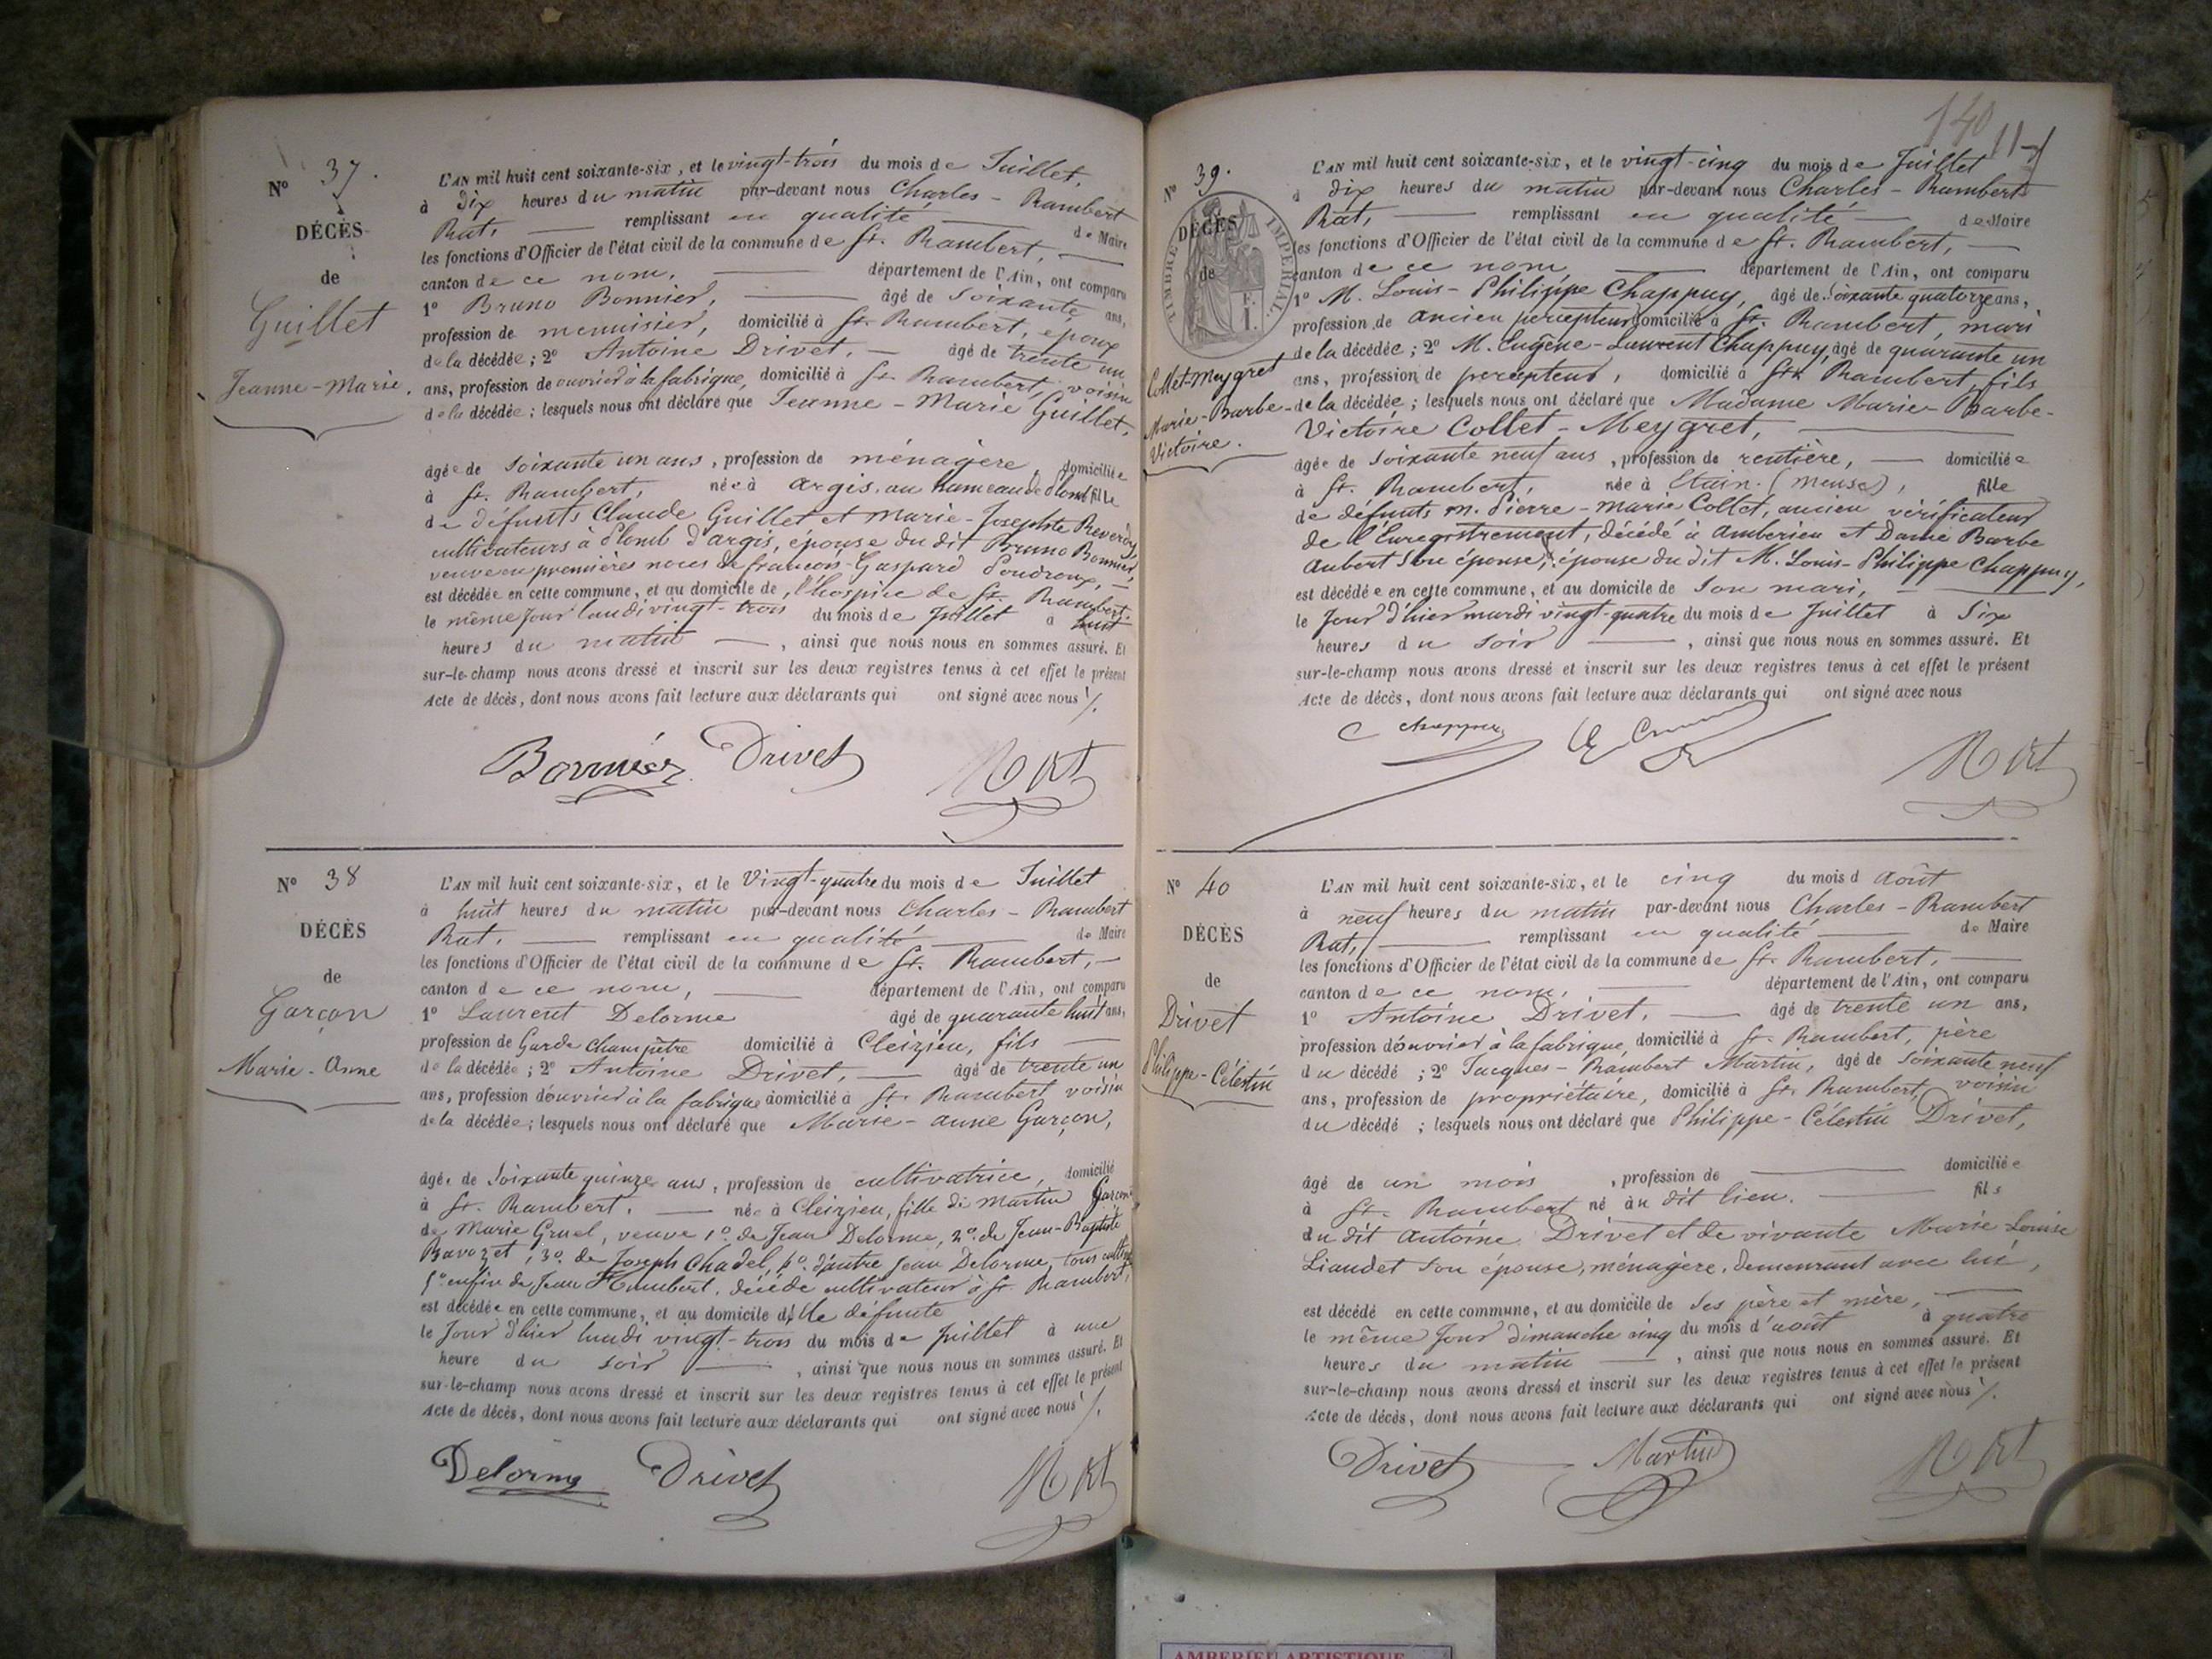 N° 37.
DÉCÈS
de
Guillet
Jeanne-Marie.
L'AN mil huit cent soixante-six, et le vingt-trois du mois de Juillet,
à dix heures du matin par-devant nous Charles-Rambert
Rat, remplissant en qualité de Maire
les fonctions d'Officier de l'état civil de la commune de St. Rambert,
canton de ce nom, département de l'Ain, ont comparu
1° Bruno Bonnier, âgé de soixante ans,
profession de menuisier, domicilié à St. Rambert, époux
de la décédée; 2° Antoine Drivet, âgé de trente un
ans, profession de ouvrier à la fabrique, domicilié à St. Rambert, voisin
de la décédée; lesquels nous ont déclaré que Jeanne-Marie Guillet,
âgée de soixante un ans, profession de ménagère, domiciliée
à St. Rambert, née à argis, au hameau de Plomb fille
de défunts Claude Guillet et Marie-Josephte
cultivateurs à Plomb d'argis, épouse du dit Bruno Bonnier,
veuve en premières noces de françois-Gaspard
est décédée en cette commune, et au domicile de l'hospice de St. Rambert,
le même jour lundi vingt-trois du mois de Juillet à huit
heures du matin, ainsi que nous nous en sommes assuré. Et
sur-le-champ nous avons dressé et inscrit sur les deux registres tenus à cet effet le présent
Acte de décès, dont nous avons fait lecture aux déclarants qui ont signé avec nous /.
Bonnier Drivet Rat
N° 38
DÉCÈS
de
Garçon
Marie-Anne
L'AN mil huit cent soixante-six, et le vingt-quatre du mois de Juillet
à huit heures du matin par-devant nous Charles-Rambert
Rat, remplissant en qualité de Maire
les fonctions d'Officier de l'état civil de la commune de St. Rambert,
canton de ce nom, département de l'Ain, ont comparu
1° Laurent Delorme âgé de quarante huit ans,
profession de Garde champêtre domicilié à Cleizieu, fils
de la décédée; 2° Antoine Drivet, âgé de trente un
ans, profession d'ouvrier à la fabrique domicilié à St. Rambert voisin
de la décédée; lesquels nous ont déclaré que Marie-anne Garçon,
âgée de soixante quinze ans, profession de cultivatrice, domicilié
à St. Rambert, née à Cleizieu, fille de Martin Garçon
de Marie Gruel, veuve 1° de Jean Delorme, 2° de Jean-Baptiste
Bavozet, 3° de Joseph Chadel, 4° d'autre Jean Delorme, tous
5° enfin de Jean Humbert, décédé cultivateur à St. Rambert,
est décédée en cette commune, et au domicile d'elle défunte
le jour d'hier lundi vingt-trois du mois de Juillet à une
heure du soir, ainsi que nous nous en sommes assuré. Et
sur-le-champ nous avons dressé et inscrit sur les deux registres tenus à cet effet le présent
Acte de décès, dont nous avons fait lecture aux déclarants qui ont signé avec nous /.
Delorme Drivet Rat
140
N° 39.
DÉCÈS
de
TIMBRE IMPÉRIAL
Collet-Meygret
Marie-Barbe-
Victoire.
L'AN mil huit cent soixante-six, et le vingt-cinq du mois de Juillet
à dix heures du matin par-devant nous Charles-Rambert
Rat, remplissant en qualité de Maire
les fonctions d'Officier de l'état civil de la commune de St. Rambert,
canton de ce nom, département de l'Ain, ont comparu
1° M. Louis-Philippe Chappuy, âgé de soixante quatorze ans,
profession de ancien percepteur domicilié à St. Rambert, mari
de la décédée; 2° M. Eugène-Laurent Chappuy, âgé de quarante un
ans, profession de percepteur, domicilié à St. Rambert, fils
de la décédée; lesquels nous ont déclaré que Madame Marie-Barbe-
Victoire Collet-Meygret,
âgée de soixante neuf ans, profession de rentière, domiciliée
à St. Rambert, née à Etain. (Meuse), fille
de défunts M. Pierre-Marie Collet, ancien vérificateur
de l'Enregistrement, décédé à Ambérieu et Dame Barbe
Aubert son épouse, épouse du dit M. Louis-Philippe Chappuy,
est décédée en cette commune, et au domicile de son mari,
le jour d'hier mardi vingt-quatre du mois de Juillet à six
heures du soir, ainsi que nous nous en sommes assuré. Et
sur-le-champ nous avons dressé et inscrit sur les deux registres tenus à cet effet le présent
Acte de décès, dont nous avons fait lecture aux déclarants qui ont signé avec nous
Rat
N° 40
DÉCÈS
de
Drivet
Philippe-Célestin
L'AN mil huit cent soixante-six, et le cinq du mois d août
à neuf heures du matin par-devant nous Charles-Rambert
Rat, remplissant en qualité de Maire
les fonctions d'Officier de l'état civil de la commune de St. Rambert,
canton de ce nom, département de l'Ain, ont comparu
1° Antoine Drivet, âgé de trente un ans,
profession d'ouvrier à la fabrique, domicilié à St. Rambert, père
du décédé; 2° Jacques-Rambert Martin, âgé de soixante neuf
ans, profession de propriétaire, domicilié à St. Rambert, voisin
du décédé; lesquels nous ont déclaré que Philippe-Célestin Drivet,
âgé de un mois, profession de domiciliée
à St. Rambert né au dit lieu. fils
du dit Antoine Drivet et de vivante Marie Louise
Liaudet son épouse, ménagère, demeurant avec lui,
est décédé en cette commune, et au domicile de ses père et mère,
le même jour dimanche cinq du mois d'août à quatre
heures du matin, ainsi que nous nous en sommes assuré. Et
sur-le-champ nous avons dressé et inscrit sur les deux registres tenus à cet effet le présent
Acte de décès, dont nous avons fait lecture aux déclarants qui ont signé avec nous /.
Drivet Martin Rat
AMBERIEU ARTISTIQUE